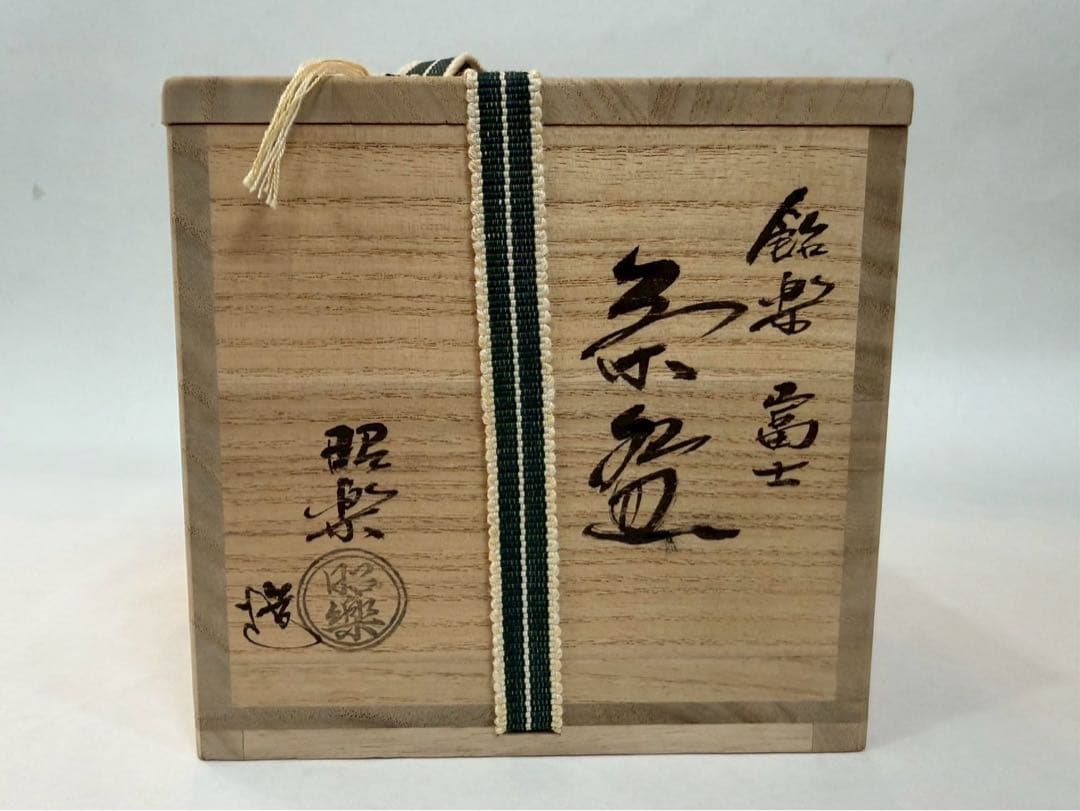 飴楽 富士
茶盌
昭楽
造
昭樂